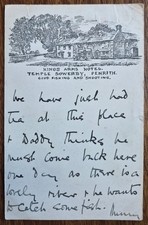 KINGS ARMS HOTEL
TEMPLE SOWERBY, PENRITH.
GOOD FISHING AND SHOOTING.
We have just had
tea at this place
& Daddy thinks he
must come back here
one day as there is a
lovely river & he wants
to catch some fish.